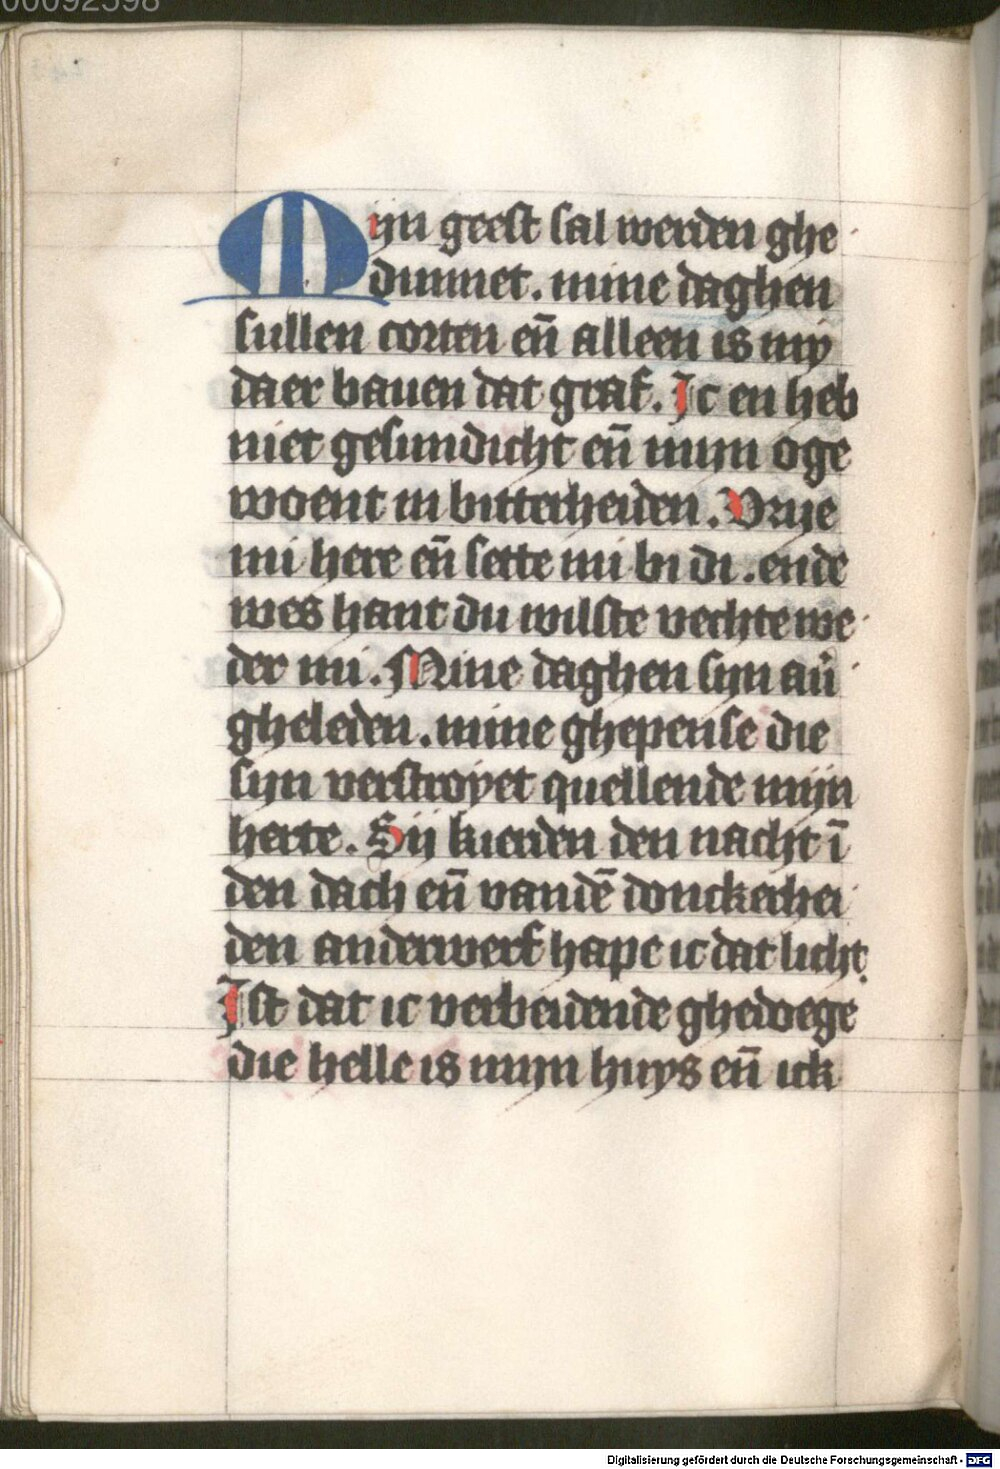 00092598
Mijn geest sal werden ghe
dinnet. mine daghen
sullen corten en̄ alleen is my
daer bauen dat graf. Ic en heb
niet gesundicht en̄ mijn oge
woent in bitterheiden. Vrije
mi here en̄ sette mi bi di. ende
wes hant du wilste vechte we
der mi. Mine daghen sijn au̅
gheleden. mine ghepense die
sijn verstroyet quellende mijn
herte. Sij kierden den nacht ī
den dach en̄ vandē donckerhei
den anderwerf hape ic dat licht
Ist dat ic verbeidende ghedoege
die helle is mijn huys en̄ ick
Digitalisierung gefördert durch die Deutsche Forschungsgemeinschaft - DFG